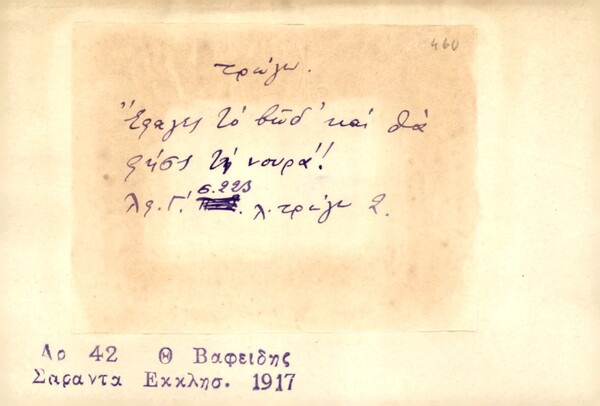 460
τρώγω.
"Έφαγες τό βῶδ' καί θά
φήσς τή νουρά"!
Λφ. Γ! σ. 223 λ. τρώγω 2.
Λο 42 Θ Βαφειδης
Σαραντα Εκκλησ. 1917